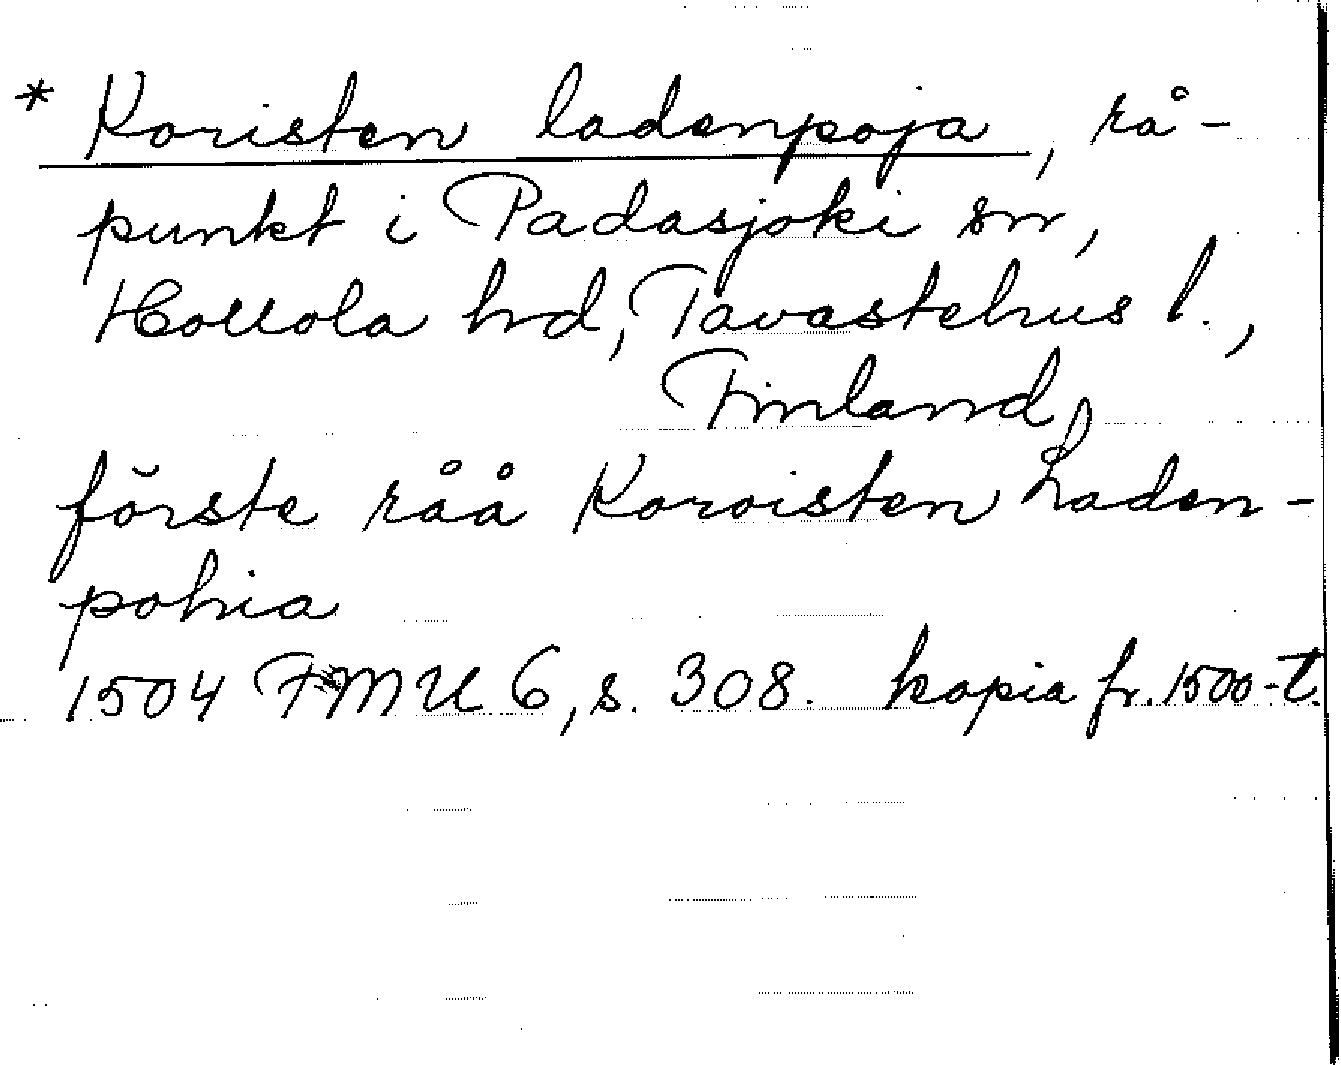 * Koristen ladenpoja, rå-
punkt i Padasjoki sn,
Hollola hd, Tavastehus l.,
Finland,
förste råå Koroisten Laden-
pohia
1504 FMU 6, s. 308. kopia fr. 1500-t.